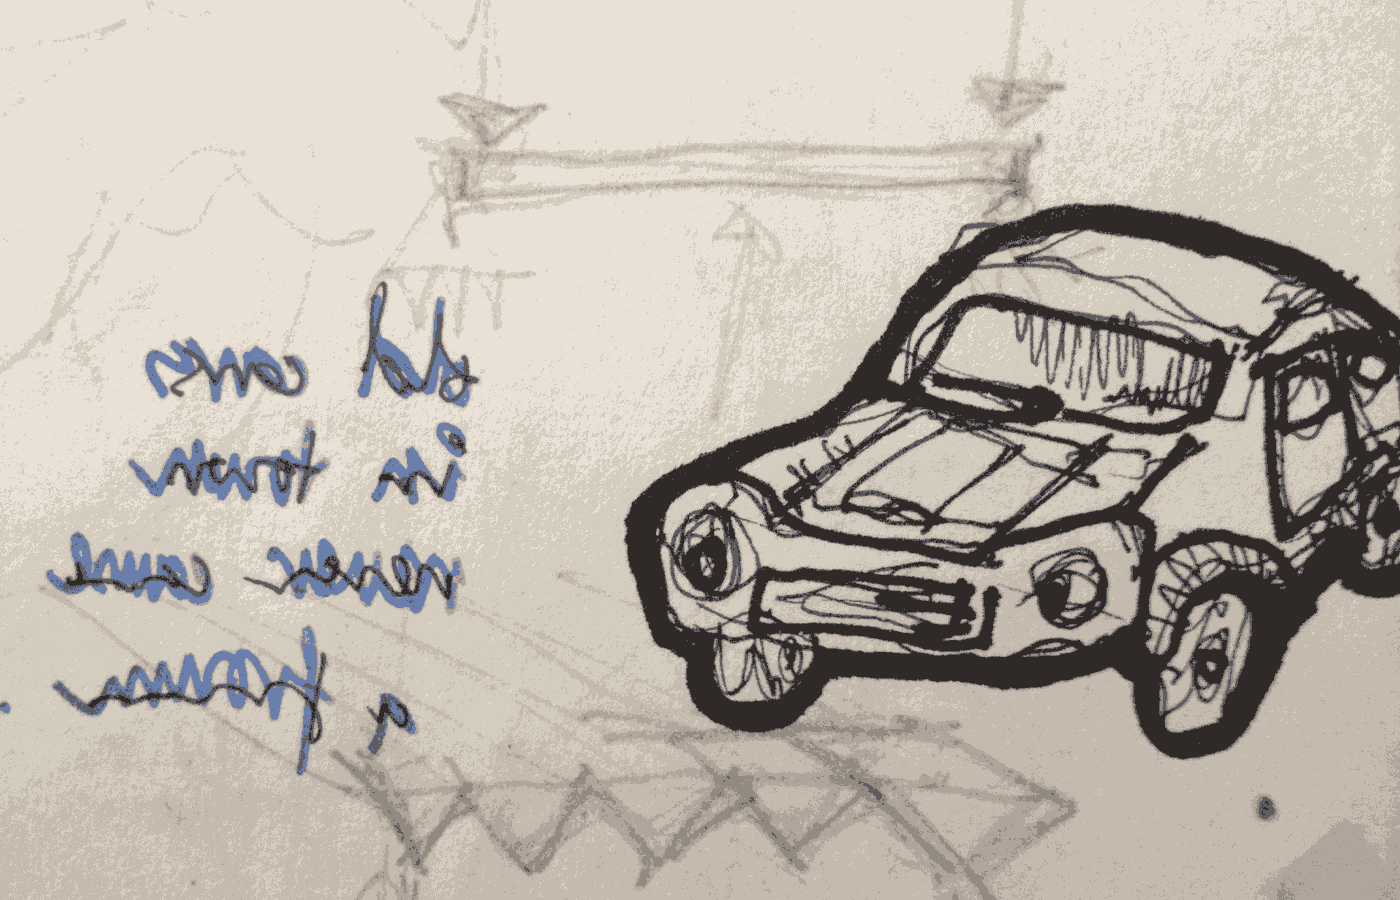 old cars
in town
never cause
a frown.